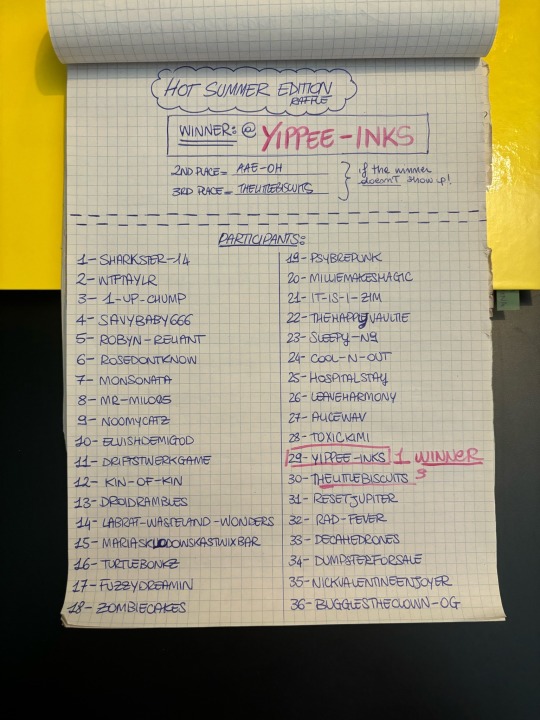 HOT SUMMER EDITION
RAFFLE
WINNER: @ YIPPEE-INKS
2ND PLACE = AAE-OH
3RD PLACE = THELITLEBISCUITS
if the winner
doesn't show up!
PARTICIPANTS:
1- SHARKSTER-14
2- WTPTAYLR
3- 1-UP-CHUMP
4- SAVYBABY666
5- ROBYN-RELIANT
6- ROSEDONTKNOW
7- MONSONATA
8- MR-MILO85
9- NOOMYCATZ
10- ELVISHDEMIGOD
11- DRIFTSWERKGAME
12- KIN-OF-KIN
13- DROIDRAMBLES
14- LABRAT-WASTELAND-WONDERS
15- MARIASKLODOWSKASTWIXBAR
16- TURTLEBONKZ
17- FUZZYDREAMIN
18- ZOMBIECAKES
19- PSYBREPUNK
20- MILLIEMAKESMAGIC
21- IT-IS-I-ZIM
22- THEHAPPYVAULTIE
23- SLEEPY-N9
24- COOL-N-OUT
25- HOSPITALSTAY
26- LEAVEHARMONY
27- ALICEWAV
28- TOXICKIMI
29- YIPPEE-INKS 1 WINNER
30- THELITLEBISCUITS 3
31- RESETJUPITER
32- RAD-FEVER
33- DECAHEDRONES
34- DUMPSTERFORSALE
35- NICKVALENTINEENJOYER
36- BUGGLESTHECLOWN-OG